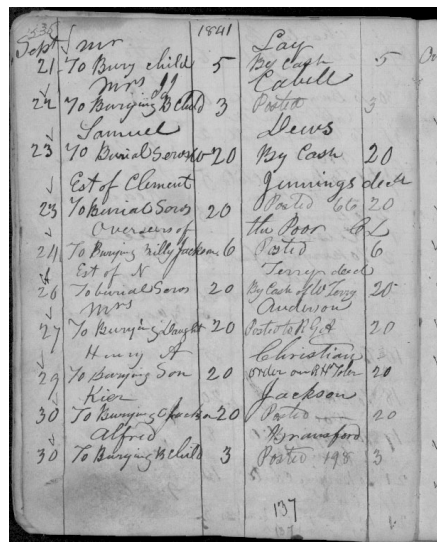 1841
Sept Mr Lay
21 To Bury child 5 By Cash 5
Mrs Cabell
22 To Burying B Child 3 Posted 3
Samuel Dews
23 To Burial Servs 20 By Cash 20
Est of Clement Jennings decd
23 To Burial Servs 20 Posted 66 20
Overseers of the Poor C L
24 To Burying Milly Jackson 6 Posted 6
Est of N Terry decd
26 To burial Servs 20 By Cash of W Terry 20
Mrs Anderson
27 To Burying Daught 20 Posted to 20
Henry A Christian
29 To Burying Son 20 order on R H Toler 20
Kier Jackson
30 To Burying 20 Posted 20
Alfred Bransford
30 To Burying B Child 3 Posted 198 3
137
137